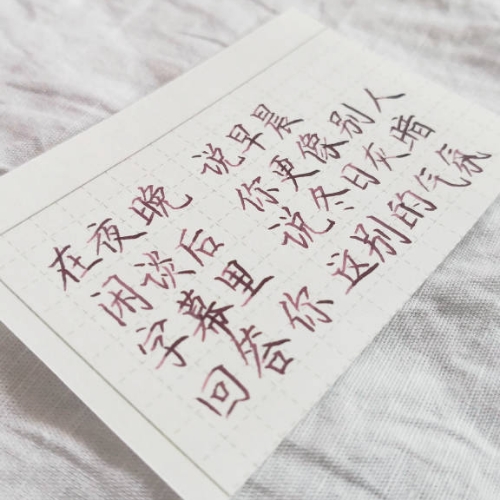 在夜晚 说早晨
闲谈后 你更像别人
字幕里 说冬日灰暗
回答你 这别的气氛